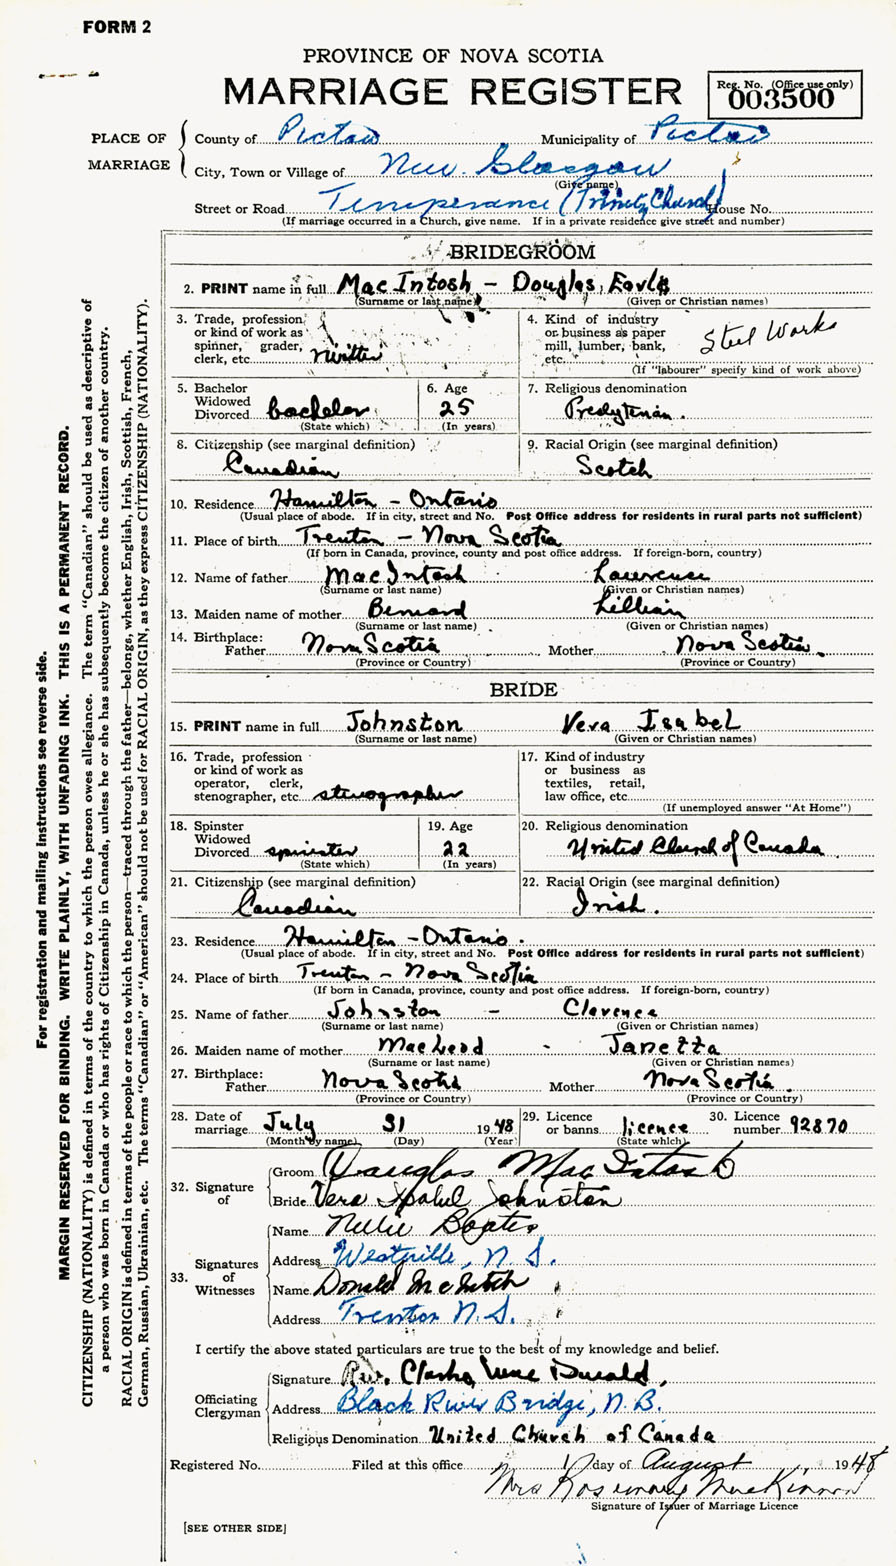 FORM 2
PROVINCE OF NOVA SCOTIA
MARRIAGE REGISTER
Reg. No. (Office use only)
003500
PLACE OF MARRIAGE
County of Pictou Municipality of Pictou
City, Town or Village of New Glasgow
(Give name)
Street or Road Temperance (Trinity Church) House No.
(If marriage occurred in a Church, give name. If in a private residence give street and number)
BRIDEGROOM
2. PRINT name in full MacIntosh - Douglas, Earle
(Surname or last name) (Given or Christian names)
3. Trade, profession or kind of work as spinner, grader, clerk, etc. riveter
4. Kind of industry or business as paper mill, lumber, bank, etc. Steel Works
(If "labourer" specify kind of work above)
5. Bachelor Widowed Divorced bachelor
(State which)
6. Age 25
(In years)
7. Religious denomination
Presbyterian.
8. Citizenship (see marginal definition)
Canadian
9. Racial Origin (see marginal definition)
Scotch
10. Residence Hamilton - Ontario
(Usual place of abode. If in city, street and No. Post Office address for residents in rural parts not sufficient)
11. Place of birth Trenton - Nova Scotia
(If born in Canada, province, county and post office address. If foreign-born, country)
12. Name of father MacIntosh Lawrence
(Surname or last name) (Given or Christian names)
13. Maiden name of mother Bernard Lillian
(Surname or last name) (Given or Christian names)
14. Birthplace:
Father Nova Scotia Mother Nova Scotia
(Province or Country) (Province or Country)
BRIDE
15. PRINT name in full Johnston Vera Isabel
(Surname or last name) (Given or Christian names)
16. Trade, profession or kind of work as operator, clerk, stenographer, etc. stenographer
17. Kind of industry or business as textiles, retail, law office, etc.
(If unemployed answer "At Home")
18. Spinster Widowed Divorced spinster
(State which)
19. Age 22
(In years)
20. Religious denomination
United Church of Canada
21. Citizenship (see marginal definition)
Canadian
22. Racial Origin (see marginal definition)
Irish.
23. Residence Hamilton - Ontario.
(Usual place of abode. If in city, street and No. Post Office address for residents in rural parts not sufficient)
24. Place of birth Trenton - Nova Scotia
(If born in Canada, province, county and post office address. If foreign-born, country)
25. Name of father Johnston - Clarence
(Surname or last name) (Given or Christian names)
26. Maiden name of mother MacLeod - Janetta
(Surname or last name) (Given or Christian names)
27. Birthplace:
Father Nova Scotia Mother Nova Scotia.
(Province or Country) (Province or Country)
28. Date of marriage July 31 1948
(Month by name) (Day) (Year)
29. Licence or banns licence
(State which)
30. Licence number 92870
32. Signature of
Groom Douglas MacIntosh
Bride Vera Isabel Johnston
33. Signatures of Witnesses
Name Nellie
Address Westville, N.S.
Name Donald McIntosh
Address Trenton N.S.
I certify the above stated particulars are true to the best of my knowledge and belief.
Officiating Clergyman
Signature Rev.
Address Black River Bridge, N.B.
Religious Denomination United Church of Canada
Registered No. Filed at this office 1 day of August 1948
Mrs Rosemary MacKinnon
Signature of Issuer of Marriage Licence
[SEE OTHER SIDE]
For registration and mailing instructions see reverse side.
MARGIN RESERVED FOR BINDING. WRITE PLAINLY, WITH UNFADING INK. THIS IS A PERMANENT RECORD.
CITIZENSHIP (NATIONALITY) is defined in terms of the country to which the person owes allegiance. The term "Canadian" should be used as descriptive of
a person who was born in Canada or who has rights of Citizenship in Canada, unless he or she has subsequently become the citizen of another country.
RACIAL ORIGIN is defined in terms of the people or race to which the person—traced through the father—belongs, whether English, Irish, Scottish, French,
German, Russian, Ukrainian, etc. The terms "Canadian" or "American" should not be used for RACIAL ORIGIN, as they express CITIZENSHIP (NATIONALITY).